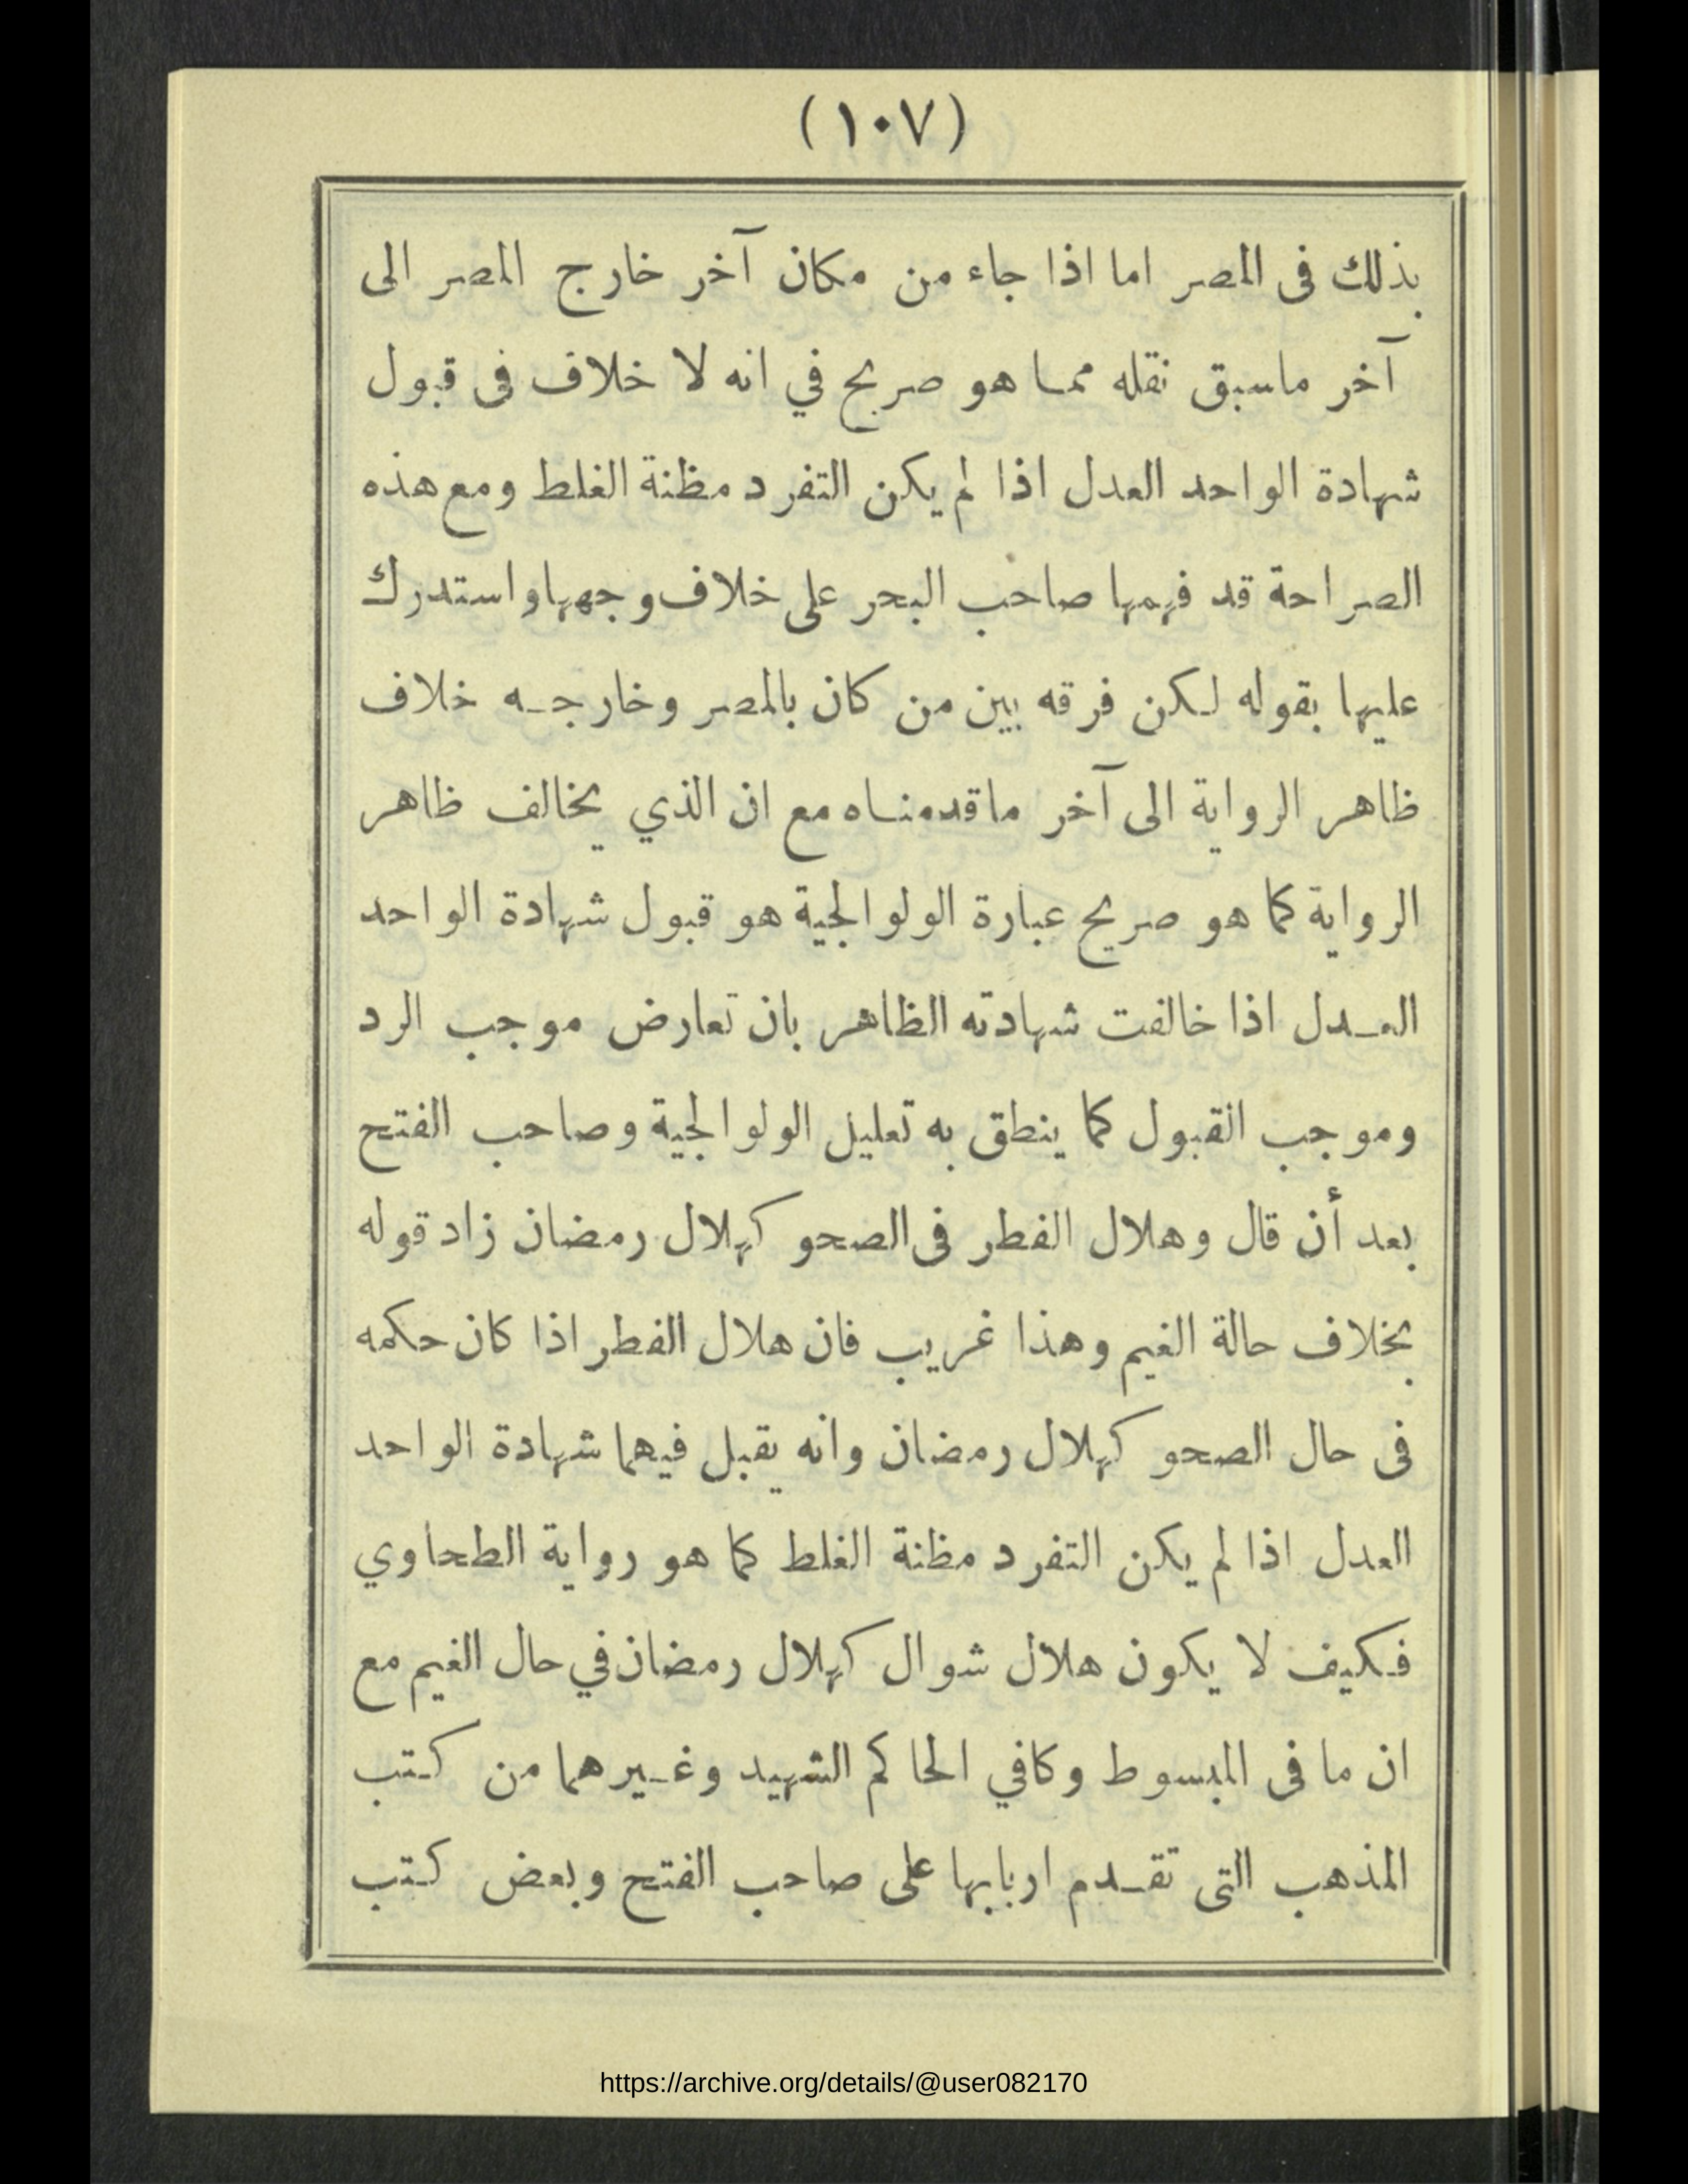 (١٠٧)
بذلك فى المصر اما اذا جاء من مكان آخر خارج المصر الى
آخر ماسبق نقله مما هو صريح في انه لا خلاف فى قبول
شهادة الواحد العدل اذا لم يكن التفرد مظنة الغلط ومع هذه
الصراحة قد فهمها صاحب البحر على خلاف وجهها واستدرك
عليها بقوله لكن فرقه بين من كان بالمصر وخارجه خلاف
ظاهر الرواية الى آخر ماقدمناه مع ان الذي يخالف ظاهر
الرواية كما هو صريح عبارة الولوالجية هو قبول شهادة الواحد
العدل اذا خالفت شهادته الظاهر بان تعارض موجب الرد
وموجب القبول كما ينطق به تعليل الولوالجية وصاحب الفتح
بعد أن قال وهلال الفطر فى الصحو كهلال رمضان زاد قوله
بخلاف حالة الغيم وهذا غريب فان هلال الفطر اذا كان حكمه
فى حال الصحو كهلال رمضان وانه يقبل فيهما شهادة الواحد
العدل اذا لم يكن التفرد مظنة الغلط كما هو رواية الطحاوي
فكيف لا يكون هلال شوال كهلال رمضان في حال الغيم مع
ان ما فى المبسوط وكافي الحاكم الشهيد وغيرهما من كتب
المذهب التى تقدم اربابها على صاحب الفتح وبعض كتب
https://archive.org/details/@user082170